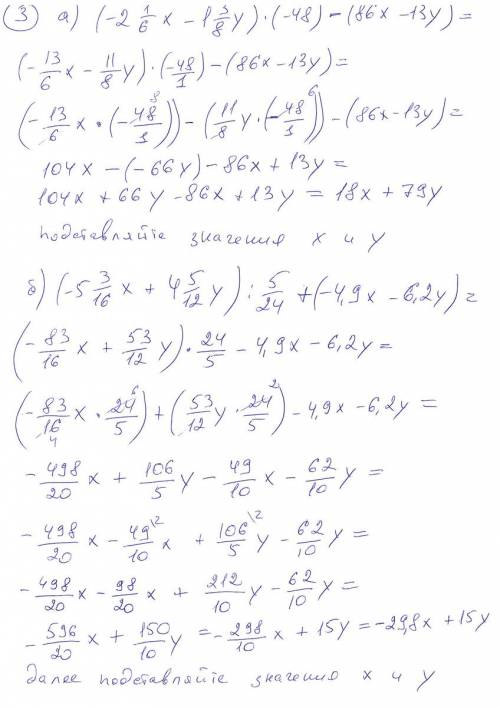 ③ а) (-2 1/6 x - 1 3/8 y) · (-48) - (86x - 13y) =
(-13/6 x - 11/8 y) · (-48/1) - (86x - 13y) =
(-13/6 x · (-48/1)⁸) - (11/8 y · (-48/1)⁶) - (86x - 13y) =
104x - (-66y) - 86x + 13y =
104x + 66y - 86x + 13y = 18x + 79y
подставляйте значения x и y
б) (-5 3/16 x + 4 5/12 y) : 5/24 + (-4,9x - 6,2y) =
(-83/16 x + 53/12 y) · 24/5 - 4,9x - 6,2y =
(-83/16₄ x · 24⁶/5) + (53/12 y · 24²/5) - 4,9x - 6,2y =
-498/20 x + 106/5 y - 49/10 x - 62/10 y =
-498/20 x - 49\2/10 x + 106\2/5 y - 62/10 y =
-498/20 x - 98/20 x + 212/10 y - 62/10 y =
-596/20 x + 150/10 y = -298/10 x + 15y = -29,8x + 15y
далее подставляйте значения x и y